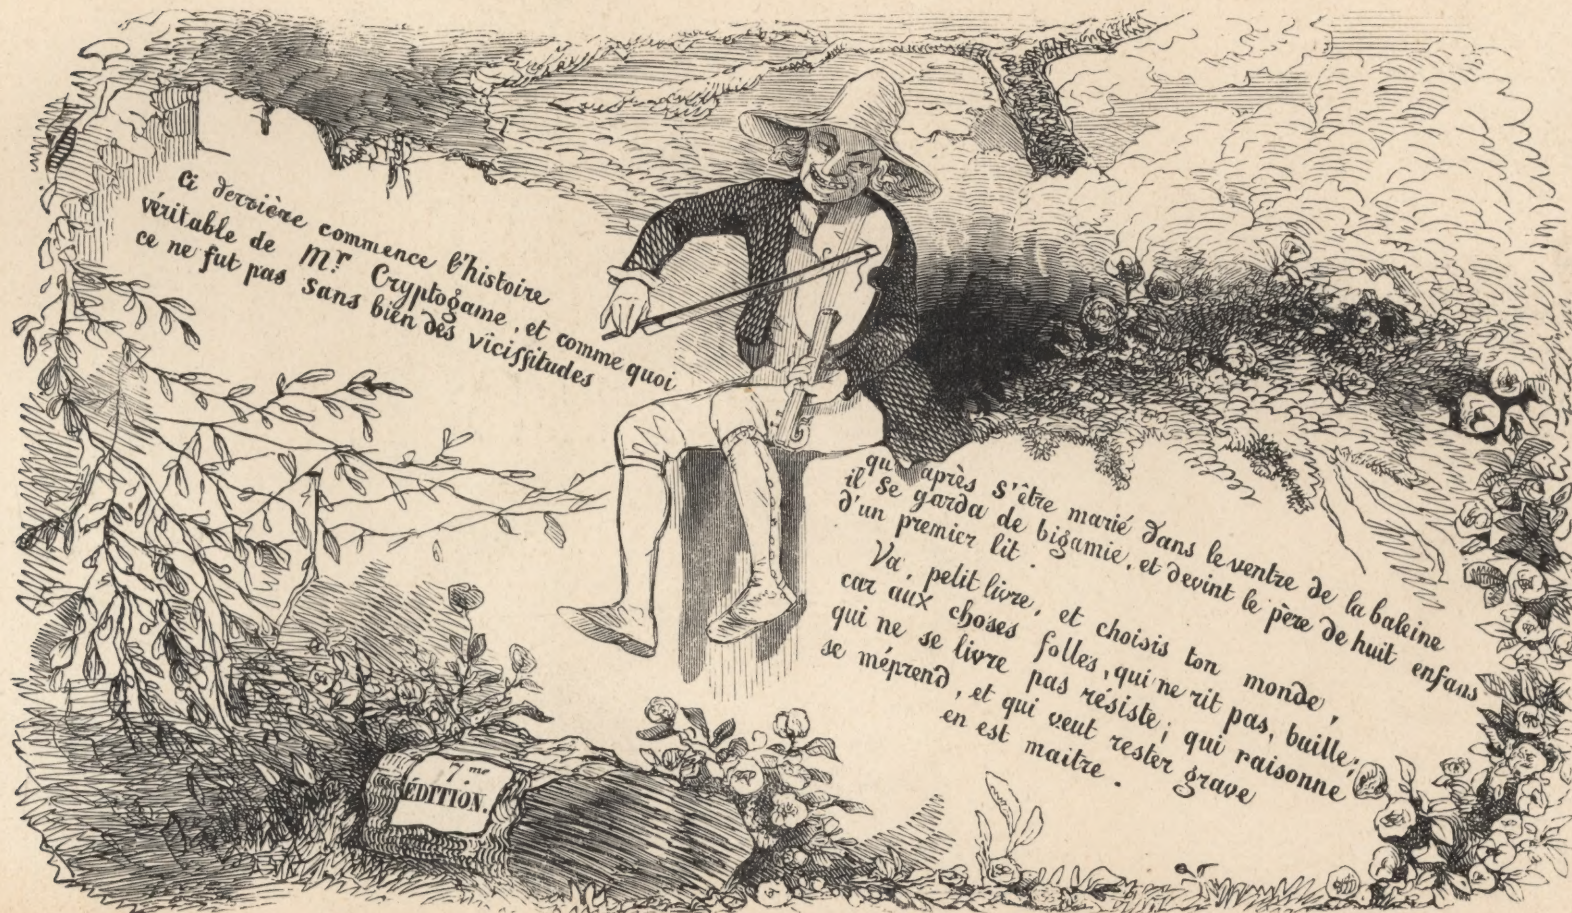 Ci derrière commence l'histoire
véritable de Mr Cryptogame, et comme quoi
ce ne fut pas sans bien des vicissitudes
qu' après s'être marié dans le ventre de la baleine
il se garda de bigamie, et devint le père de huit enfans
d'un premier lit.
Va, petit livre, et choisis ton monde,
car aux choses folles, qui ne rit pas, baille;
qui ne se livre pas résiste; qui raisonne
se méprend, et qui veut rester grave
en est maitre.
7.me
ÉDITION.